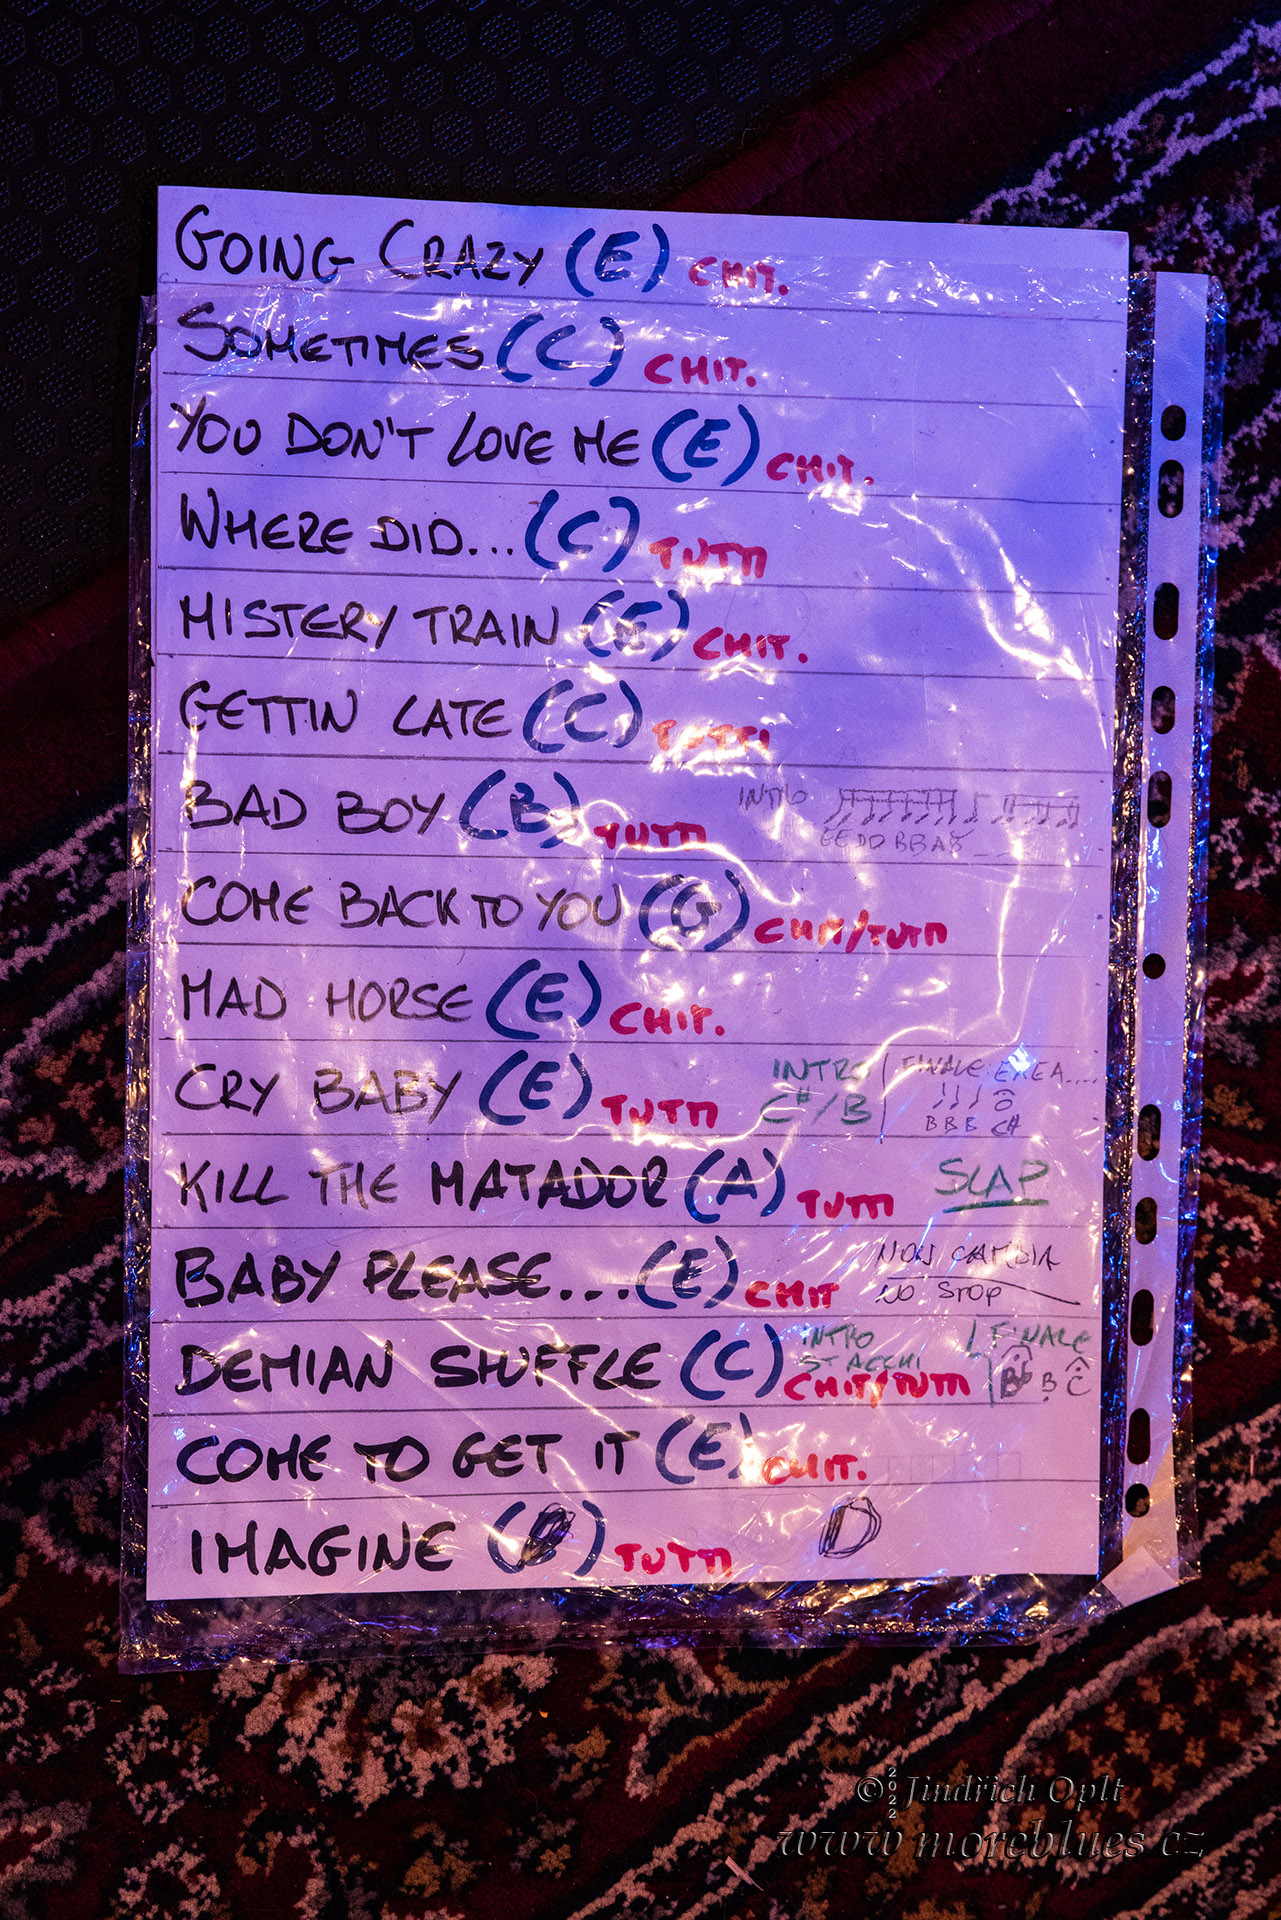 GOING CRAZY (E) CHIT.
SOMETIMES (C) CHIT.
YOU DON'T LOVE ME (E) CHIT.
WHERE DID... (C) TUTTI
MISTERY TRAIN (E) CHIT.
GETTIN LATE (C) TUTTI
BAD BOY (B) TUTTI INTRO
EE DD BB A
COME BACK TO YOU (G) CHIT/TUTTI
MAD HORSE (E) CHIT.
CRY BABY (E) TUTTI INTRO C#/B FINALE
BBB C#
KILL THE MATADOR (A) TUTTI SLAP
BABY PLEASE... (E) CHIT NON CAMBIA
NO STOP
DEMIAN SHUFFLE (C) INTRO STACCHI CHIT/TUTTI FINALE
Bb B C
COME TO GET IT (E) CHIT.
IMAGINE ( ) TUTTI D
© 2022 Jindřich Oplt
www moreblues cz